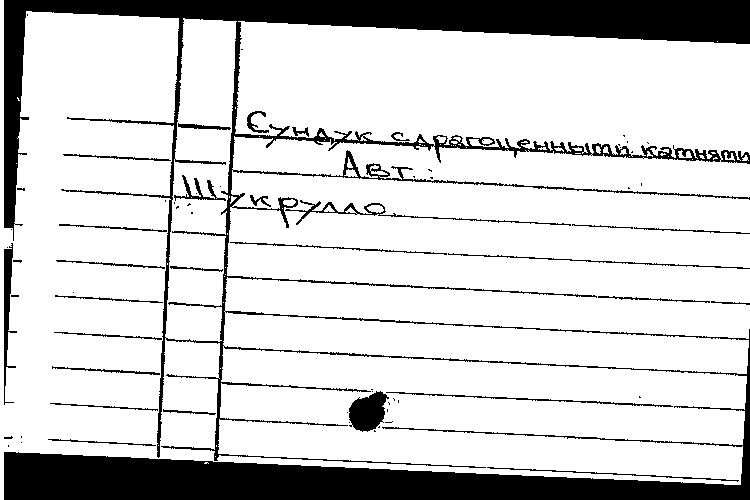 Сундук с драгоценными камнями
Авт :
Шукрулло.